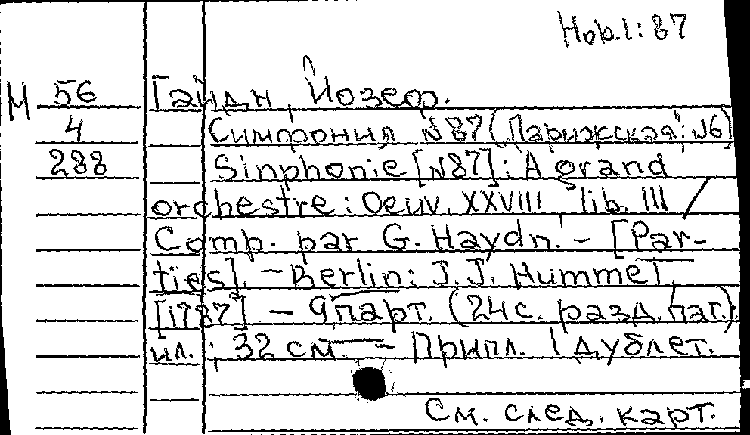 Hob.I:87
М 56 Гайдн, Йозеф.
4 Симфония №87 (Парижская: №6)
288 Sinphonie [№87]: A grand
orchestre: Oeuv. XXVIII lib. III /
Comp. par G. Haydn. – [Par-
ties]. – Berlin: J.J. Hummel,
[1787] – 9 парт. (24 с. разд. паг.)
ил.; 32 см. – Припл. 1 дублет.
См. след. карт.